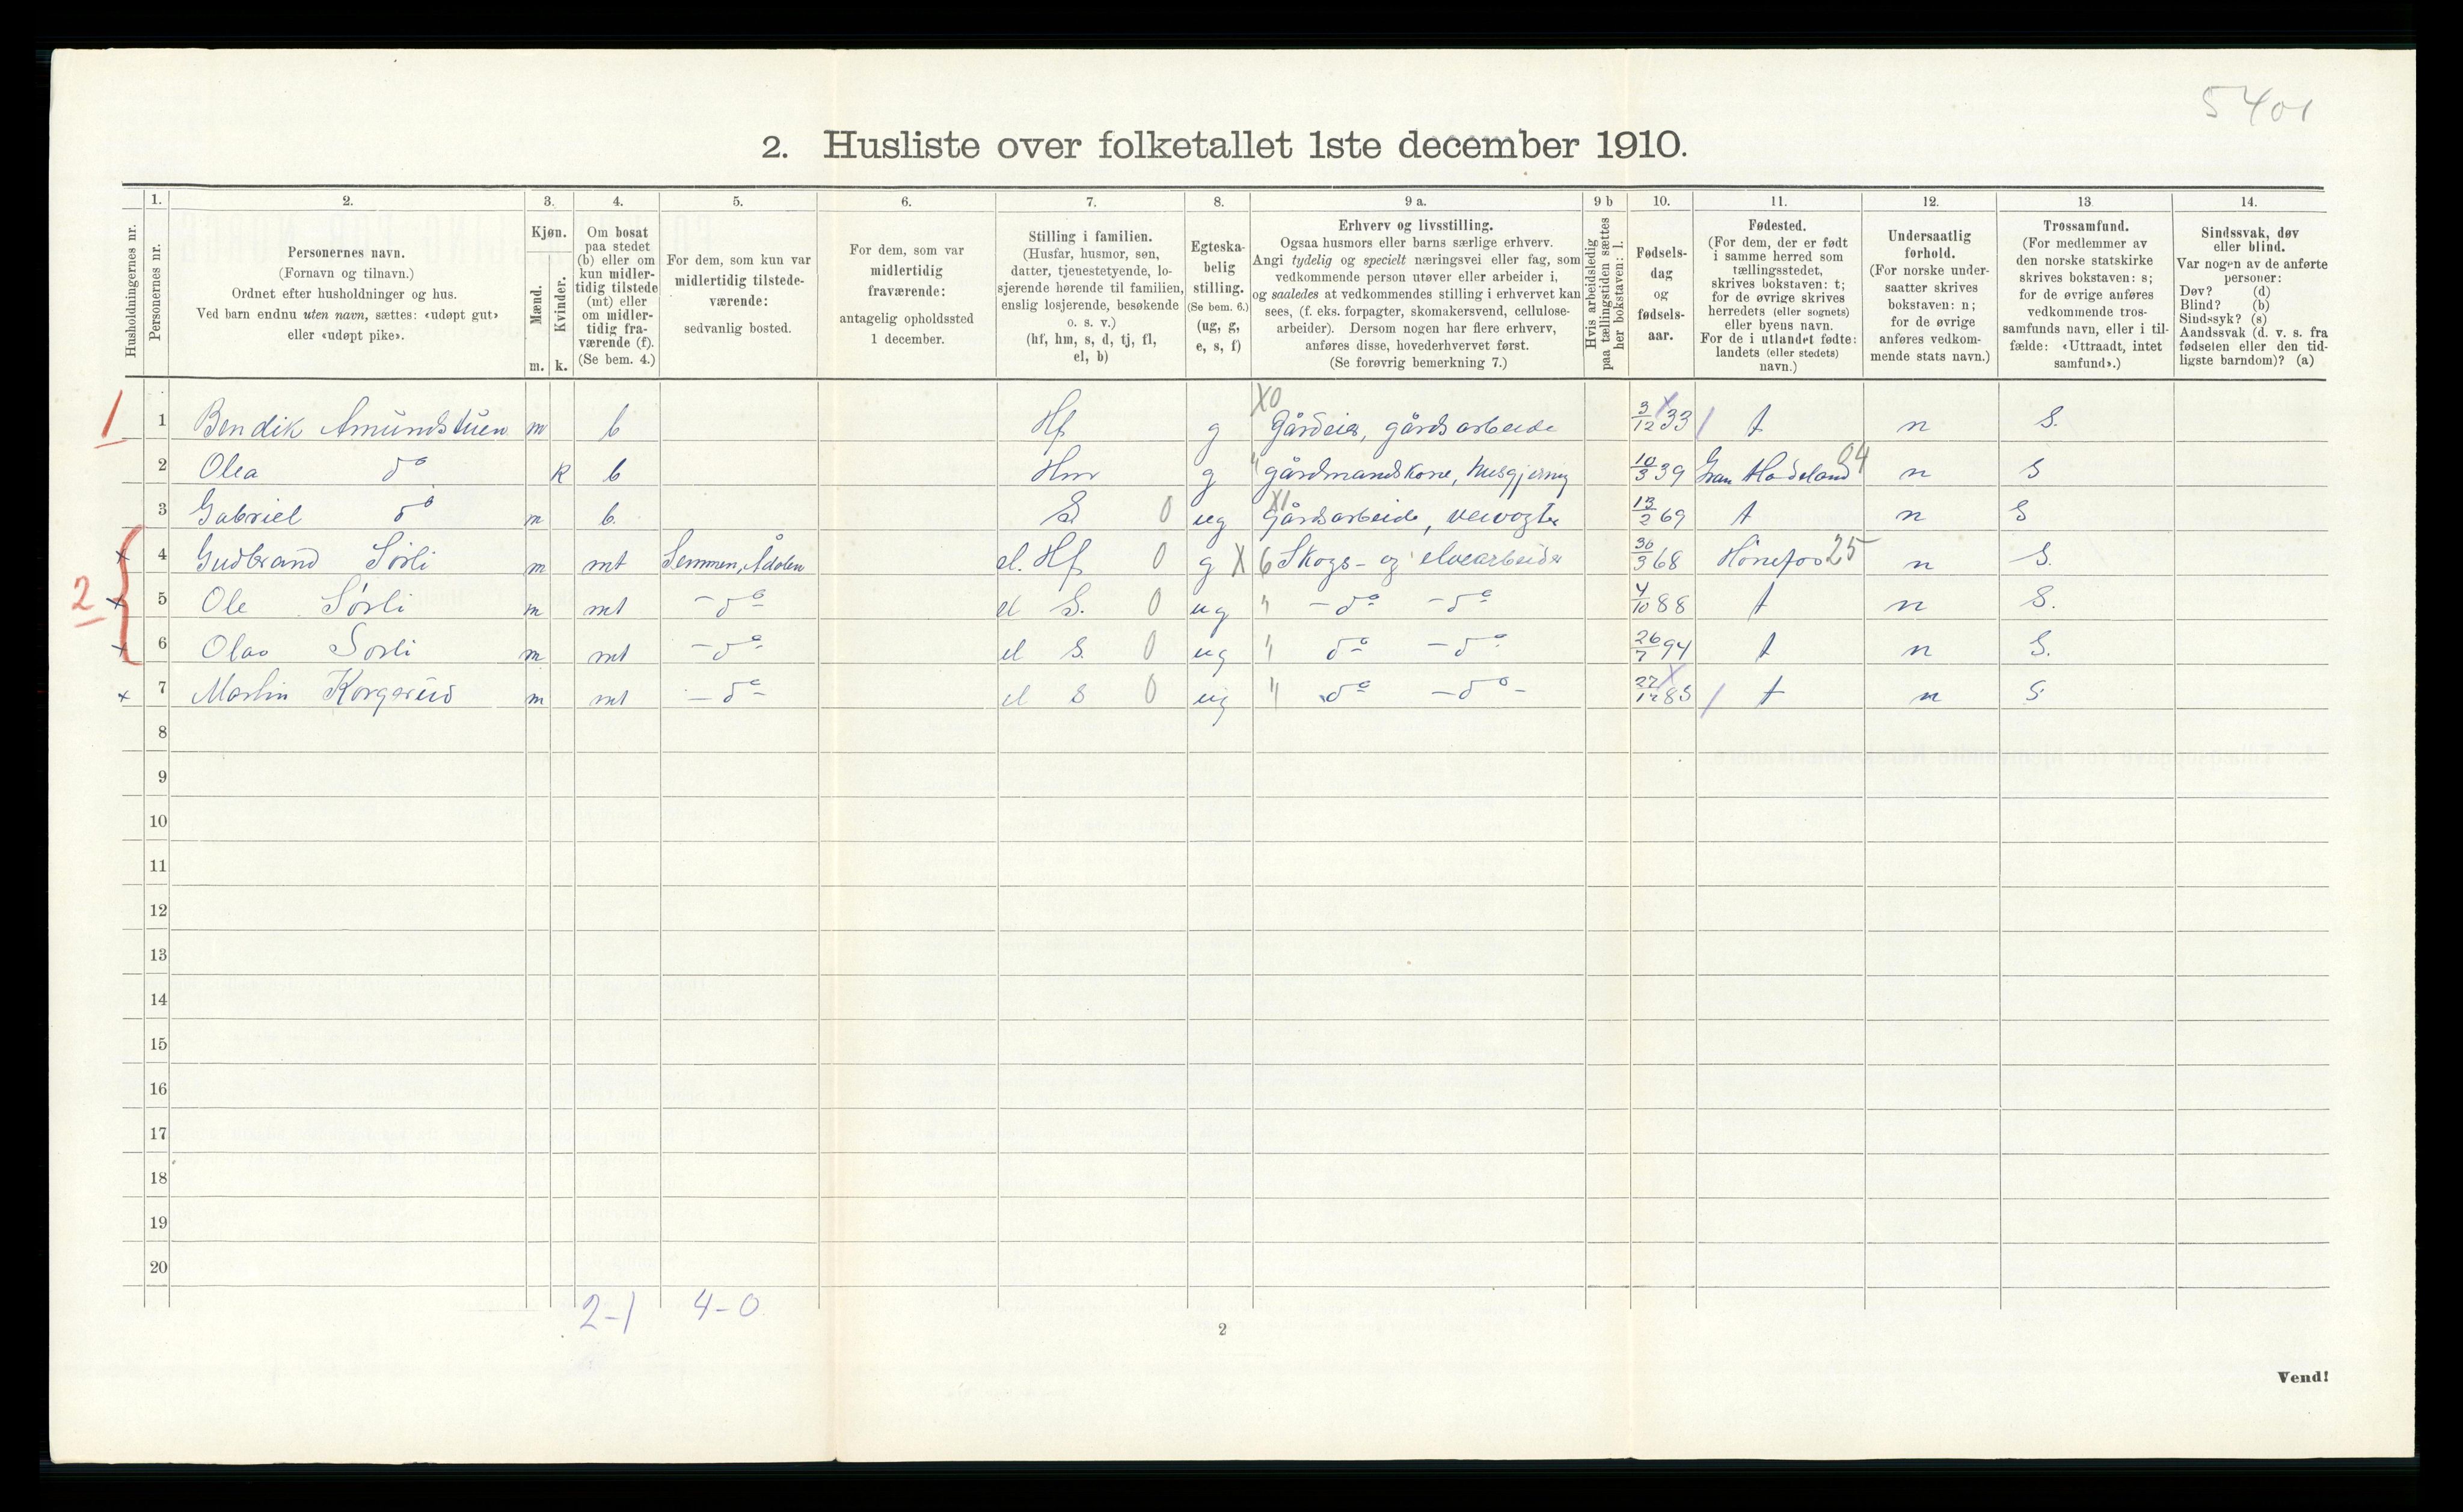 5401
2. Husliste over folketallet 1ste december 1910.
Husholdningernes nr.
1.
Personernes nr.
2.
Personernes navn.
(Fornavn og tilnavn.)
Ordnet efter husholdninger og hus.
Ved barn endnu uten navn, sættes: «udøpt gut»
eller «udøpt pike».
3.
Kjøn.
Mænd.
Kvinder.
m. k.
4.
Om bosat
paa stedet
(b) eller om
kun midler-
tidig tilstede
(mt) eller
om midler-
tidig fra-
værende (f).
(Se bem. 4.)
5.
For dem, som kun var
midlertidig tilstede-
værende:
sedvanlig bosted.
6.
For dem, som var
midlertidig
fraværende:
antagelig opholdssted
1 december.
7.
Stilling i familien.
(Husfar, husmor, søn,
datter, tjenestetyende, lo-
sjerende hørende til familien,
enslig losjerende, besøkende
o. s. v.)
(hf, hm, s, d, tj, fl,
el, b)
8.
Egteska-
belig
stilling.
(Se bem. 6.)
(ug, g,
e, s, f)
9 a.
Erhverv og livsstilling.
Ogsaa husmors eller barns særlige erhverv.
Angi tydelig og specielt næringsvei eller fag, som
vedkommende person utøver eller arbeider i,
og saaledes at vedkommendes stilling i erhvervet kan
sees, (f. eks. forpagter, skomakersvend, cellulose-
arbeider). Dersom nogen har flere erhverv,
anføres disse, hovederhvervet først.
(Se forøvrig bemerkning 7.)
9 b
Hvis arbeidsledig
paa tællingstiden sættes
her bokstaven: l.
10.
Fødsels-
dag
og
fødsels-
aar.
11.
Fødested.
(For dem, der er født
i samme herred som
tællingsstedet,
skrives bokstaven: t;
for de øvrige skrives
herredets (eller sognets)
eller byens navn.
For de i utlandet fødte:
landets (eller stedets)
navn.)
12.
Undersaatlig
forhold.
(For norske under-
saatter skrives
bokstaven: n;
for de øvrige
anføres vedkom-
mende stats navn.)
13
Trossamfund.
(For medlemmer av
den norske statskirke
skrives bokstaven: s;
for de øvrige anføres
vedkommende tros-
samfunds navn, eller i til-
fælde: «Uttraadt, intet
samfund».)
14.
Sindssvak, døv
eller blind.
Var nogen av de anførte
personer:
Døv? (d)
Blind? (b)
Sindssyk? (s)
Aandssvak (d. v. s. fra
fødselen eller den tid-
ligste barndom)? (a)
1 1 Bendik Amundstuen m b Hf g X0 Gårdeier, gårdsarbeide 3/12 33 t n S.
2 Olea do k b Hm g " gårdmandskone, husgjerning 10/3 39 Gran Hadeland 04 n S
3 Gabriel do m b. S. 0 ug X1 Gårdsarbeide, veivogter 13/2 69 t n S
2 x 4 Gudbrand Sørli m mt Semmen, Ådalen el. Hf 0 g X 6 Skogs- og elvearbeider 30/3 68 Hønefos 25 n S.
x 5 Ole Sørli m mt -do- el S. 0 ug " -do- -do- 4/10 88 t n S.
x 6 Olav Sørli m mt -do- el S. 0 ug " do- -do- 26/7 94 t n S.
x 7 Martin Korgerud m mt -do- el S 0 ug " do -do- 22/12 85 t n S
8
9
10
11
12
13
14
15
16
17
18
19
20
2-1 4-0
2
Vend!